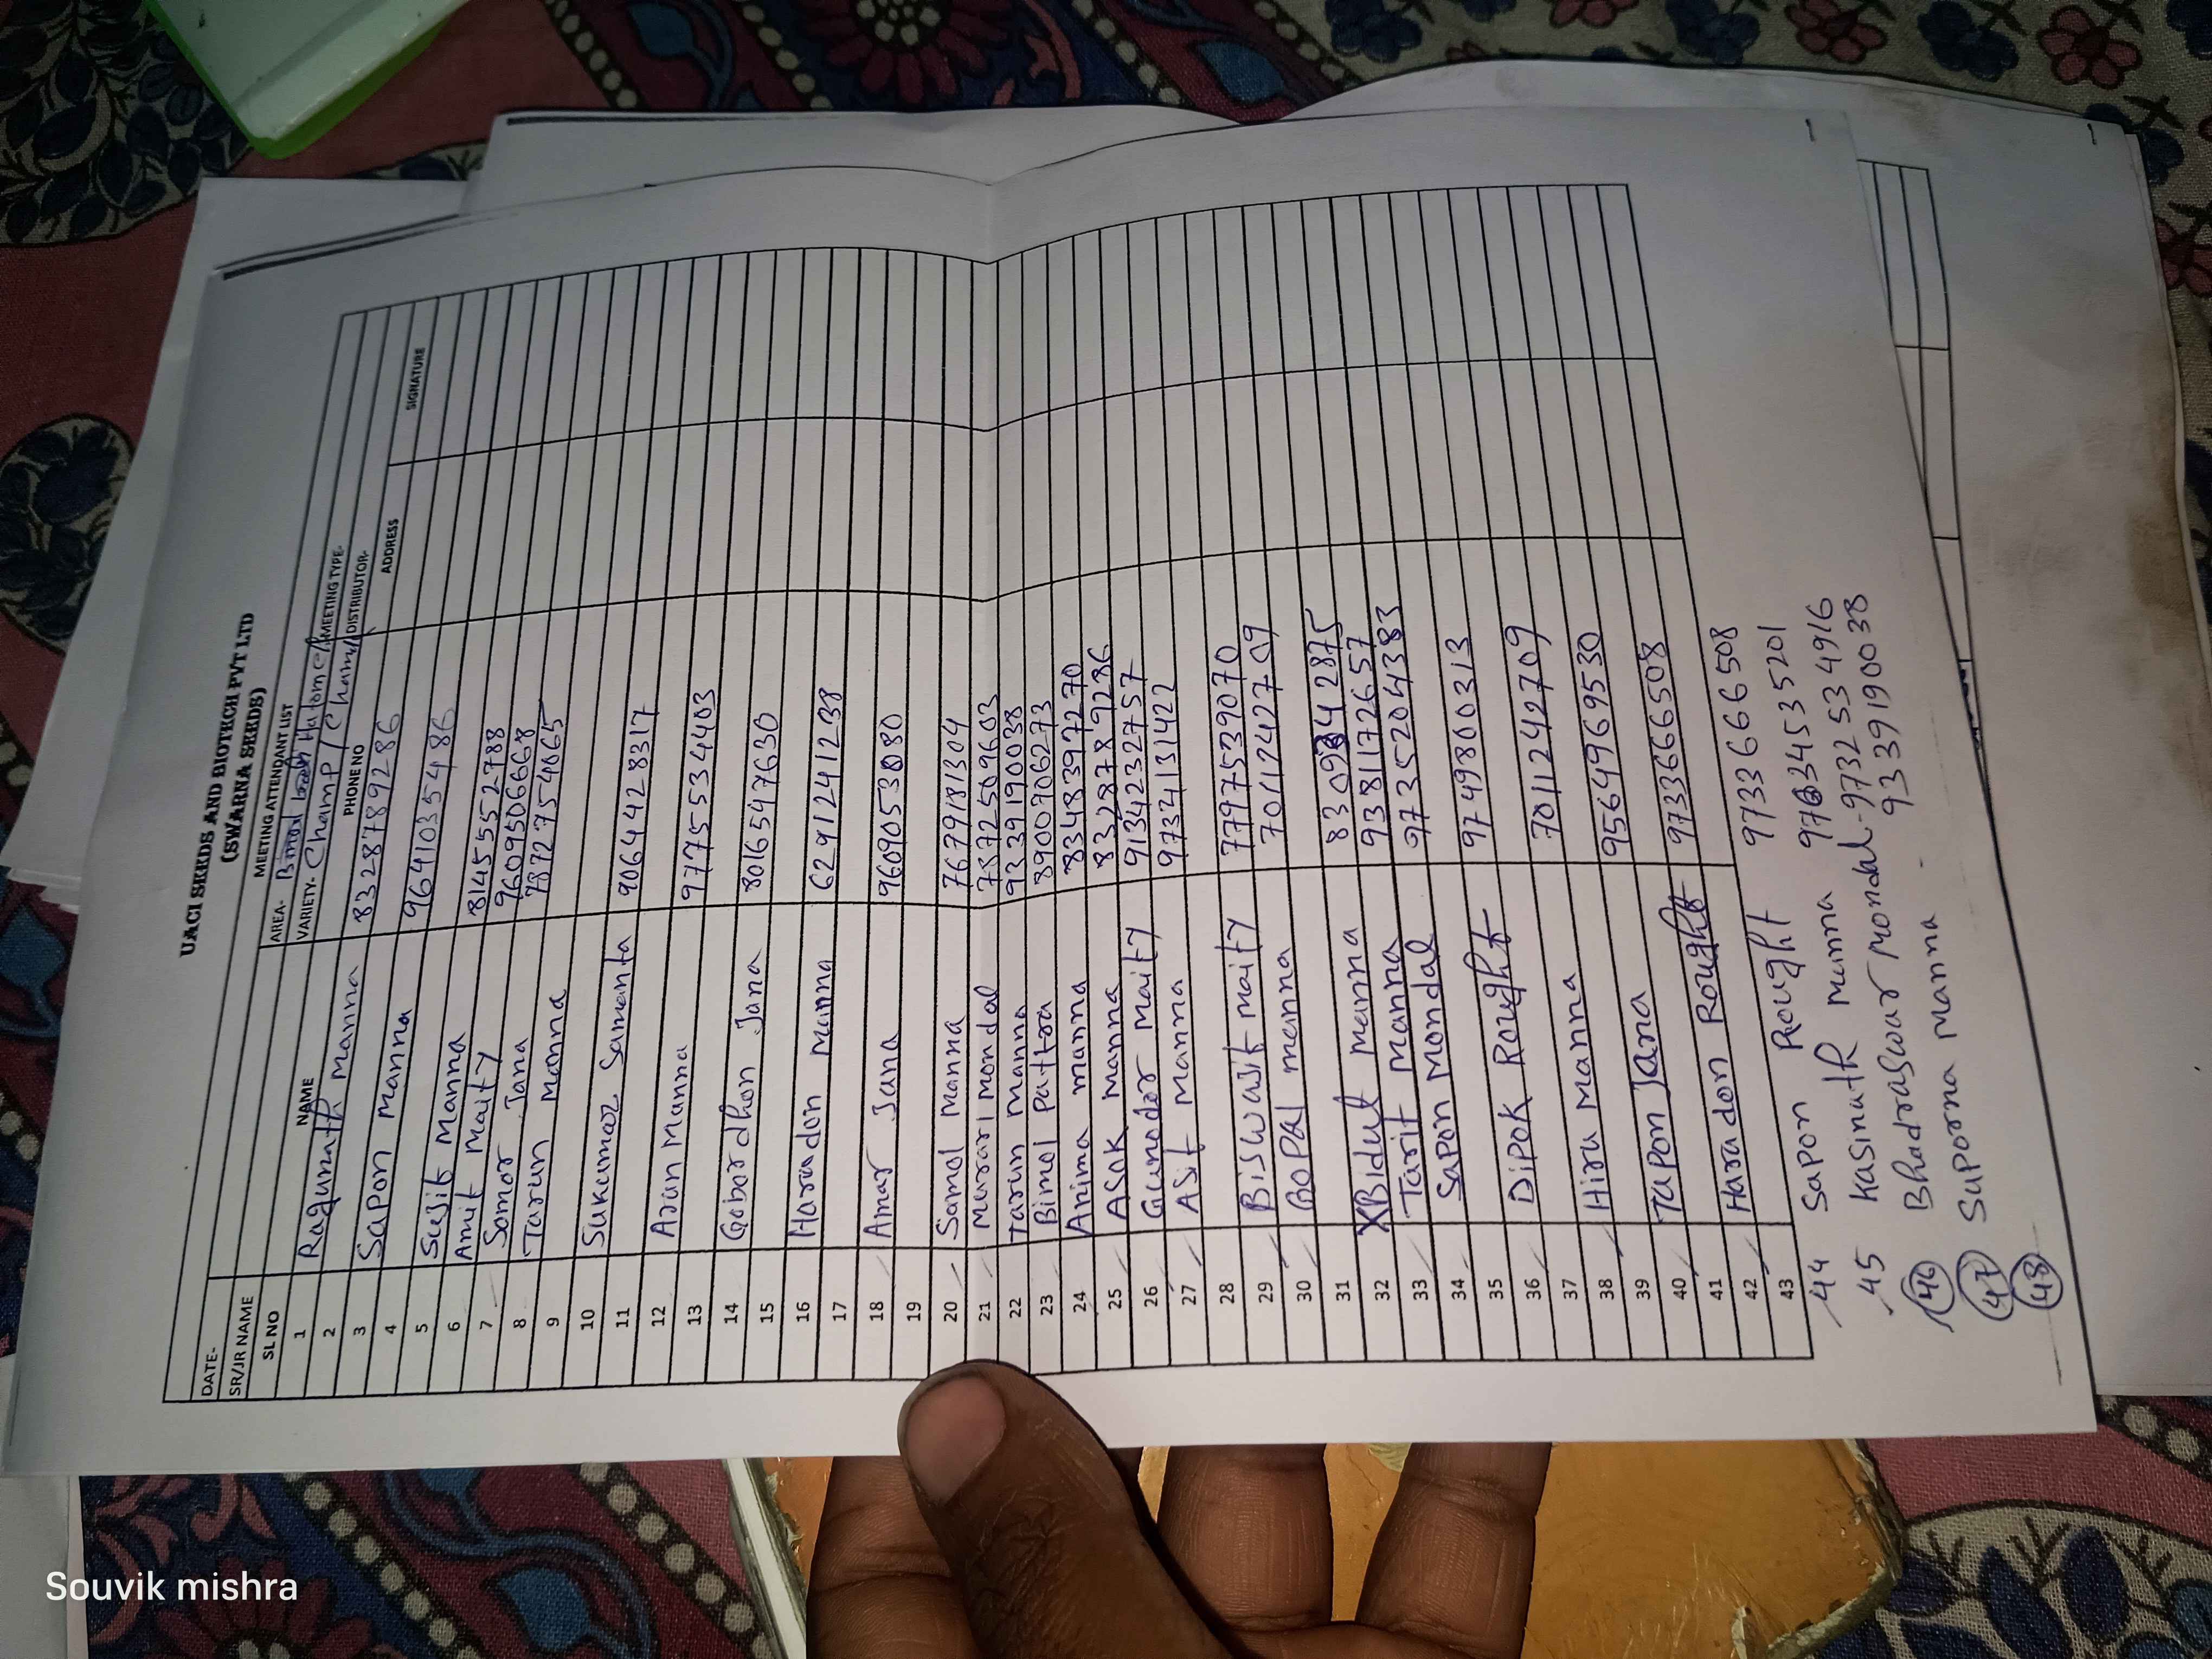 UAGI SEEDS AND BIOTECH PVT LTD
(SWARNA SEEDS)
MEETING ATTENDANT LIST
DATE- AREA- Bimal MEETING TYPE-
SR/JR NAME VARIETY- Champ / Cham DISTRIBUTOR-
SL NO NAME PHONE NO ADDRESS SIGNATURE
1 Ragunath Manna 8328789286
2
3 Sapon Manna 9641035486
4
5 Sujit Manna 8145552788
6 Amit Maity 9609506668
7 Somor Jana 7872754065
8 Tarun Manna
9
10 Sukumar Samanta 9064428317
11
12 Arun Manna 9775534403
13
14 Gobordhon Jana 8016547630
15
16 Haradon Manna 6291241238
17
18 Amar Jana 9609053080
19
20 Samol Manna 7679181304
21 Murari Mondal 7872509603
22 Tarun Manna 9339190038
23 Bimol Pattra 8900706273
24 Anima Manna 8348397270
25 Asok Manna 8328789286
26 Gunodor Maity 9134232757
27 Asit Manna 9734131422
28
29 Biswajit Maity 7797539070
30 Gopal Manna 7011242709
31
32 XBidut Manna
33 Tarit Manna 9381172657
34 Sapon Mondal 9735204383
35
36 Dipok Rought 9749800313
37
38 Hira Manna 7011242709
39
40 Tapon Jana 9564969530
41
42 Haradon Rought 9733666508
43
44 Sapon Rought 9733666508
45 Kasinath Manna
46 Bhadraswar Mondal - 9732534916
47 Suporna Manna - 9339190038
48
Souvik mishra